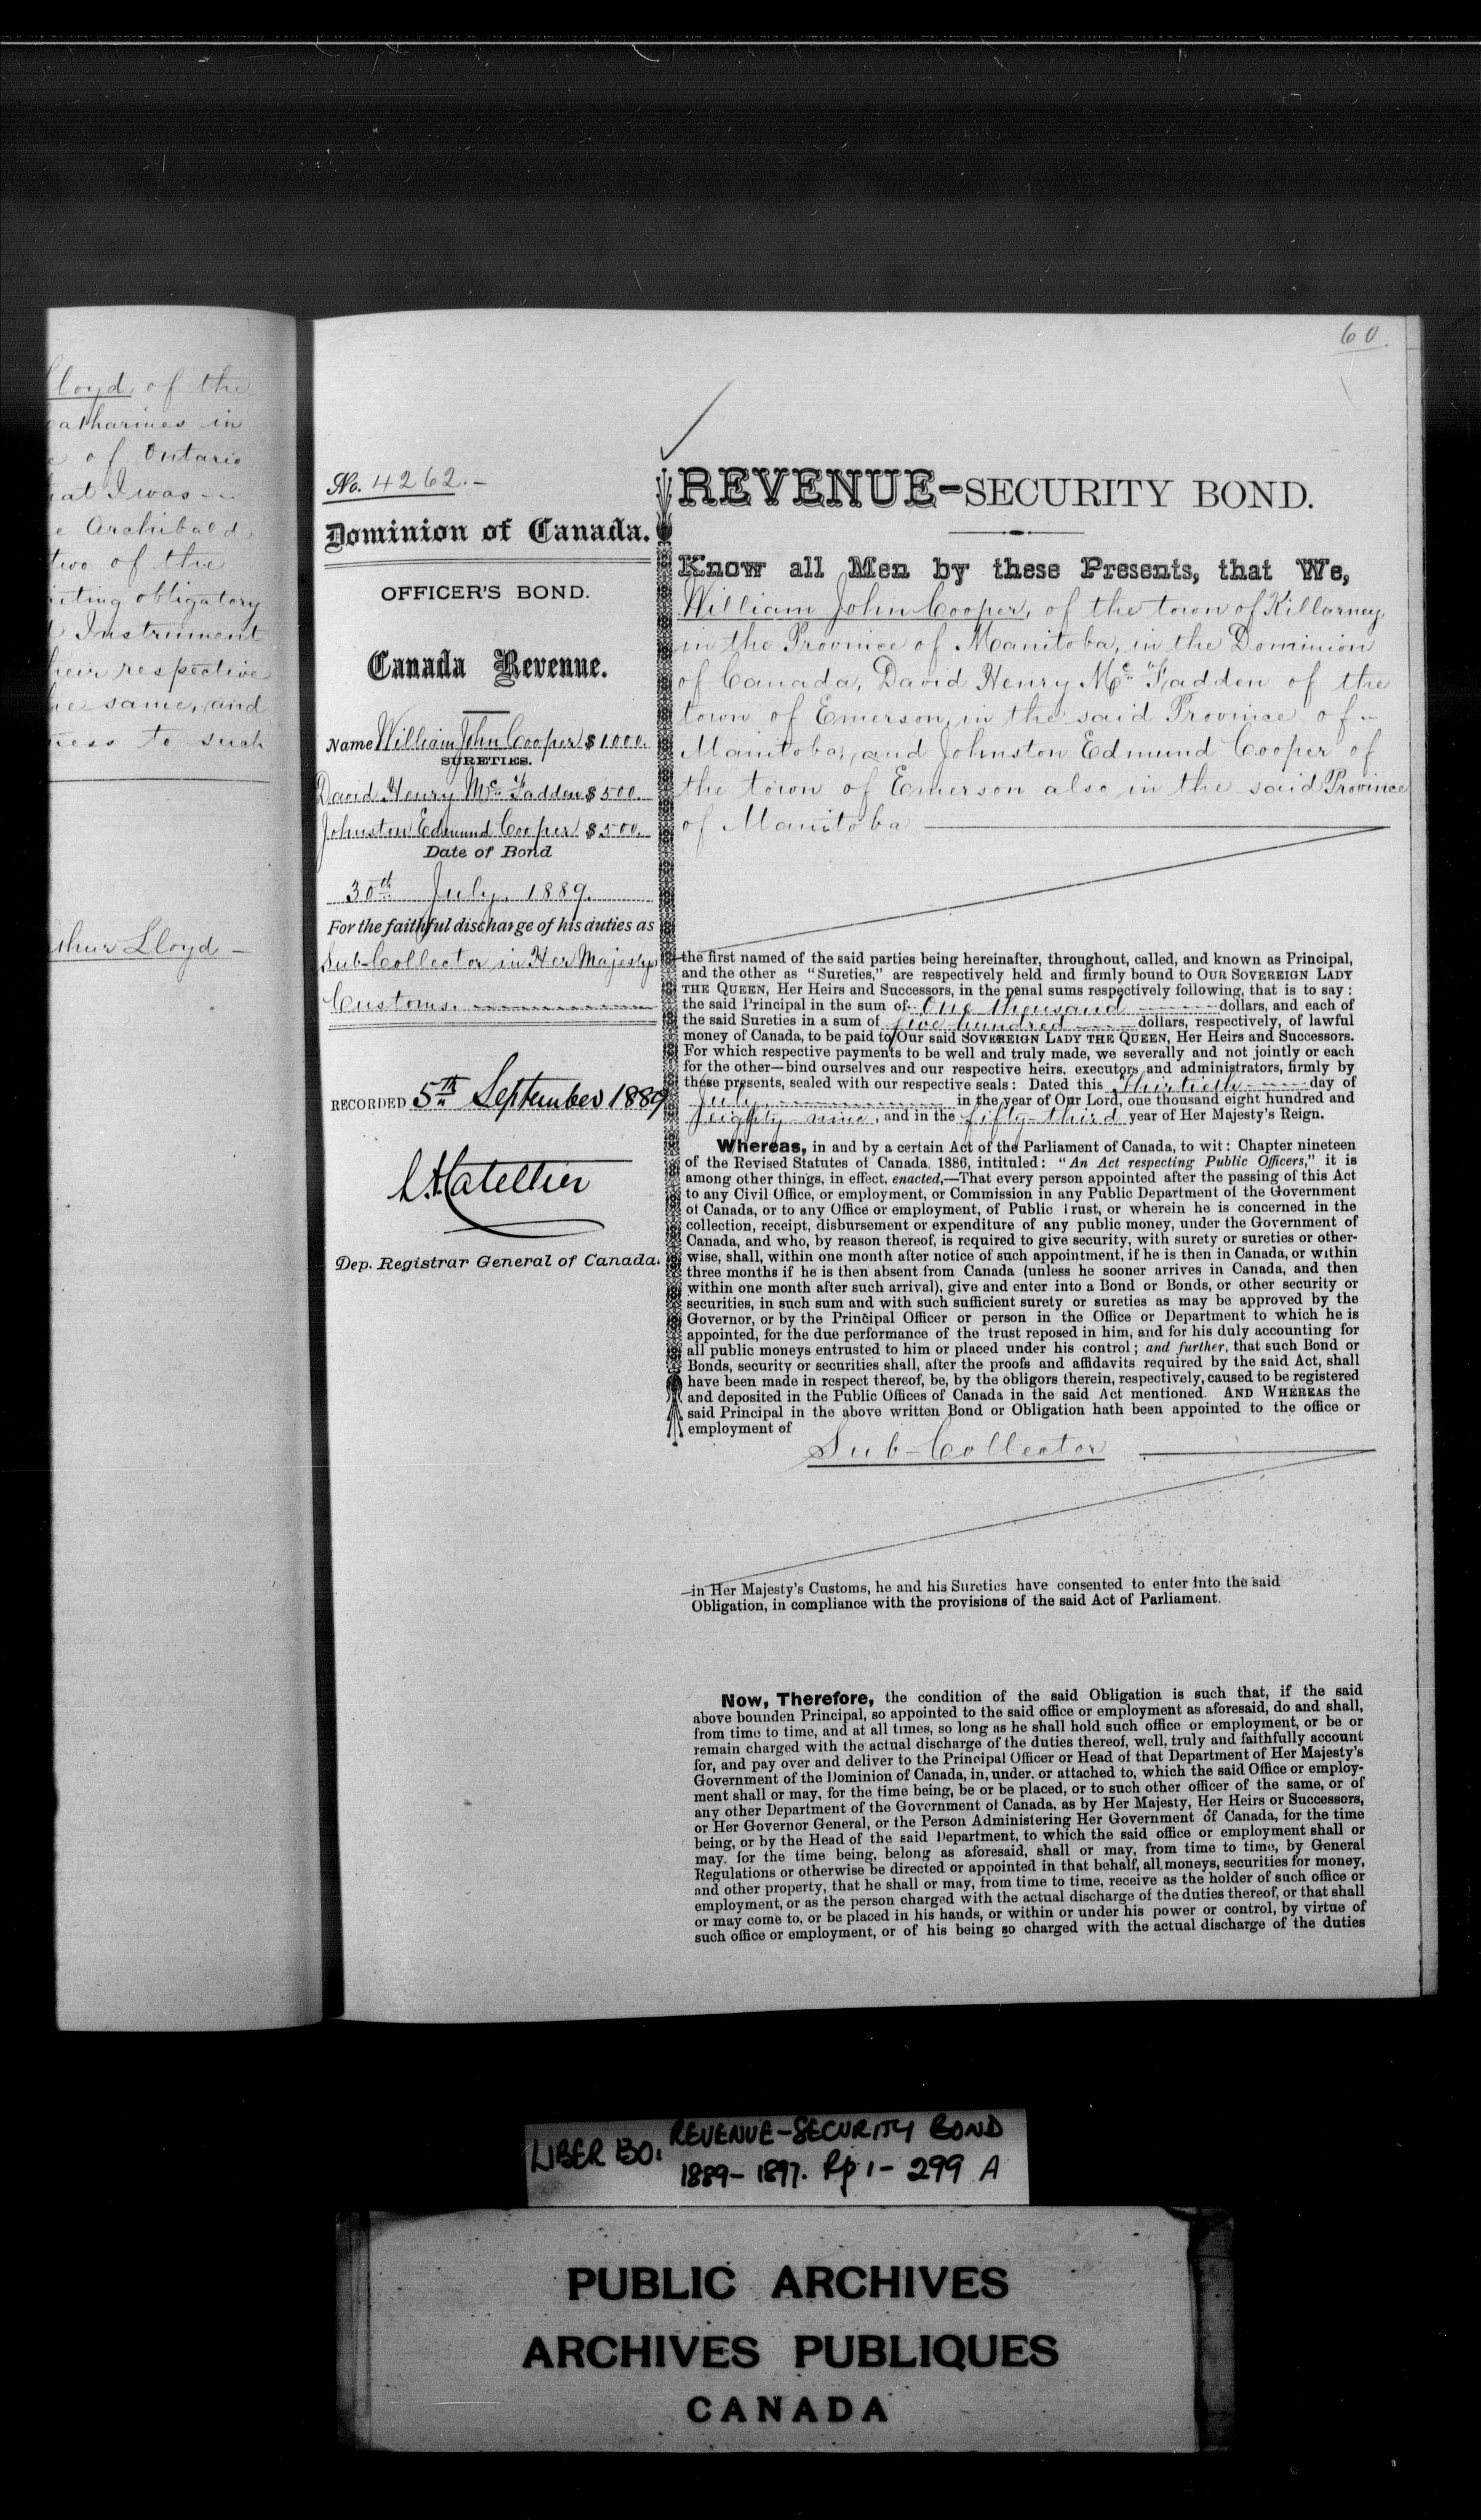 60.
lloyd, of the
atharines in
e of Ontario
hat I was
e Archibald
two of the
iting obligatory
d Instrument
heir respective
he same, and
ness to such
thur Lloyd -
No. 4262.-
Dominion of Canada.
OFFICER'S BOND.
Canada Revenue.
Name William John Cooper $1000.
SURETIES.
David Henry Mc. Fadden $500.
Johnston Edmund Cooper $500.
Date of Bond
30th July, 1889.
For the faithful discharge of his duties as
Sub-Collector in Her Majesty's
Customs.
RECORDED 5th September 1889
Dep. Registrar General of Canada.
REVENUE-SECURITY BOND.
Know all Men by these Presents, that We,
William John Cooper, of the town of Killarney,
in the Province of Manitoba, in the Dominion
of Canada, David Henry Mc. Fadden of the
town of Emerson, in the said Province of-
Manitoba, and Johnston Edmund Cooper of
the town of Emerson also in the said Province
of Manitoba
the first named of the said parties being hereinafter, throughout, called, and known as Principal,
and the other as "Sureties," are respectively held and firmly bound to OUR SOVEREIGN LADY
THE QUEEN, Her Heirs and Successors, in the penal sums respectively following, that is to say:
the said Principal in the sum of One thousand dollars, and each of
the said Sureties in a sum of five hundred dollars, respectively, of lawful
money of Canada, to be paid to Our said SOVEREIGN LADY THE QUEEN, Her Heirs and Successors.
For which respective payments to be well and truly made, we severally and not jointly or each
for the other—bind ourselves and our respective heirs, executors and administrators, firmly by
these presents, sealed with our respective seals: Dated this thirtieth day of
July, in the year of Our Lord, one thousand eight hundred and
eighty-nine, and in the fifty-third year of Her Majesty's Reign.
Whereas, in and by a certain Act of the Parliament of Canada, to wit: Chapter nineteen
of the Revised Statutes of Canada, 1886, intituled: "An Act respecting Public Officers," it is
among other things, in effect, enacted,—That every person appointed after the passing of this Act
to any Civil Office, or employment, or Commission in any Public Department of the Government
of Canada, or to any Office or employment, of Public Trust, or wherein he is concerned in the
collection, receipt, disbursement or expenditure of any public money, under the Government of
Canada, and who, by reason thereof, is required to give security, with surety or sureties or other-
wise, shall, within one month after notice of such appointment, if he is then in Canada, or within
three months if he is then absent from Canada (unless he sooner arrives in Canada, and then
within one month after such arrival), give and enter into a Bond or Bonds, or other security or
securities, in such sum and with such sufficient surety or sureties as may be approved by the
Governor, or by the Principal Officer or person in the Office or Department to which he is
appointed, for the due performance of the trust reposed in him, and for his duly accounting for
all public moneys entrusted to him or placed under his control; and further, that such Bond or
Bonds, security or securities shall, after the proofs and affidavits required by the said Act, shall
have been made in respect thereof, be, by the obligors therein, respectively, caused to be registered
and deposited in the Public Offices of Canada in the said Act mentioned. AND WHEREAS the
said Principal in the above written Bond or Obligation hath been appointed to the office or
employment of
Sub-Collector
in Her Majesty's Customs, he and his Sureties have consented to enter into the said
Obligation, in compliance with the provisions of the said Act of Parliament.
Now, Therefore, the condition of the said Obligation is such that, if the said
above bounden Principal, so appointed to the said office or employment as aforesaid, do and shall,
from time to time, and at all times, so long as he shall hold such office or employment, or be or
remain charged with the actual discharge of the duties thereof, well, truly and faithfully account
for, and pay over and deliver to the Principal Officer or Head of that Department of Her Majesty's
Government of the Dominion of Canada, in, under, or attached to, which the said Office or employ-
ment shall or may, for the time being, be or be placed, or to such other officer of the same, or of
any other Department of the Government of Canada, as by Her Majesty, Her Heirs or Successors,
or Her Governor General, or the Person Administering Her Government of Canada, for the time
being, or by the Head of the said Department, to which the said office or employment shall or
may, for the time being, belong as aforesaid, shall or may, from time to time, by General
Regulations or otherwise be directed or appointed in that behalf, all moneys, securities for money,
and other property, that he shall or may, from time to time, receive as the holder of such office or
employment, or as the person charged with the actual discharge of the duties thereof, or that shall
or may come to, or be placed in his hands, or within or under his power or control, by virtue of
such office or employment, or of his being so charged with the actual discharge of the duties
LIBER BO: REVENUE-SECURITY BOND
1889-1897. Pp 1-299 A
PUBLIC ARCHIVES
ARCHIVES PUBLIQUES
CANADA